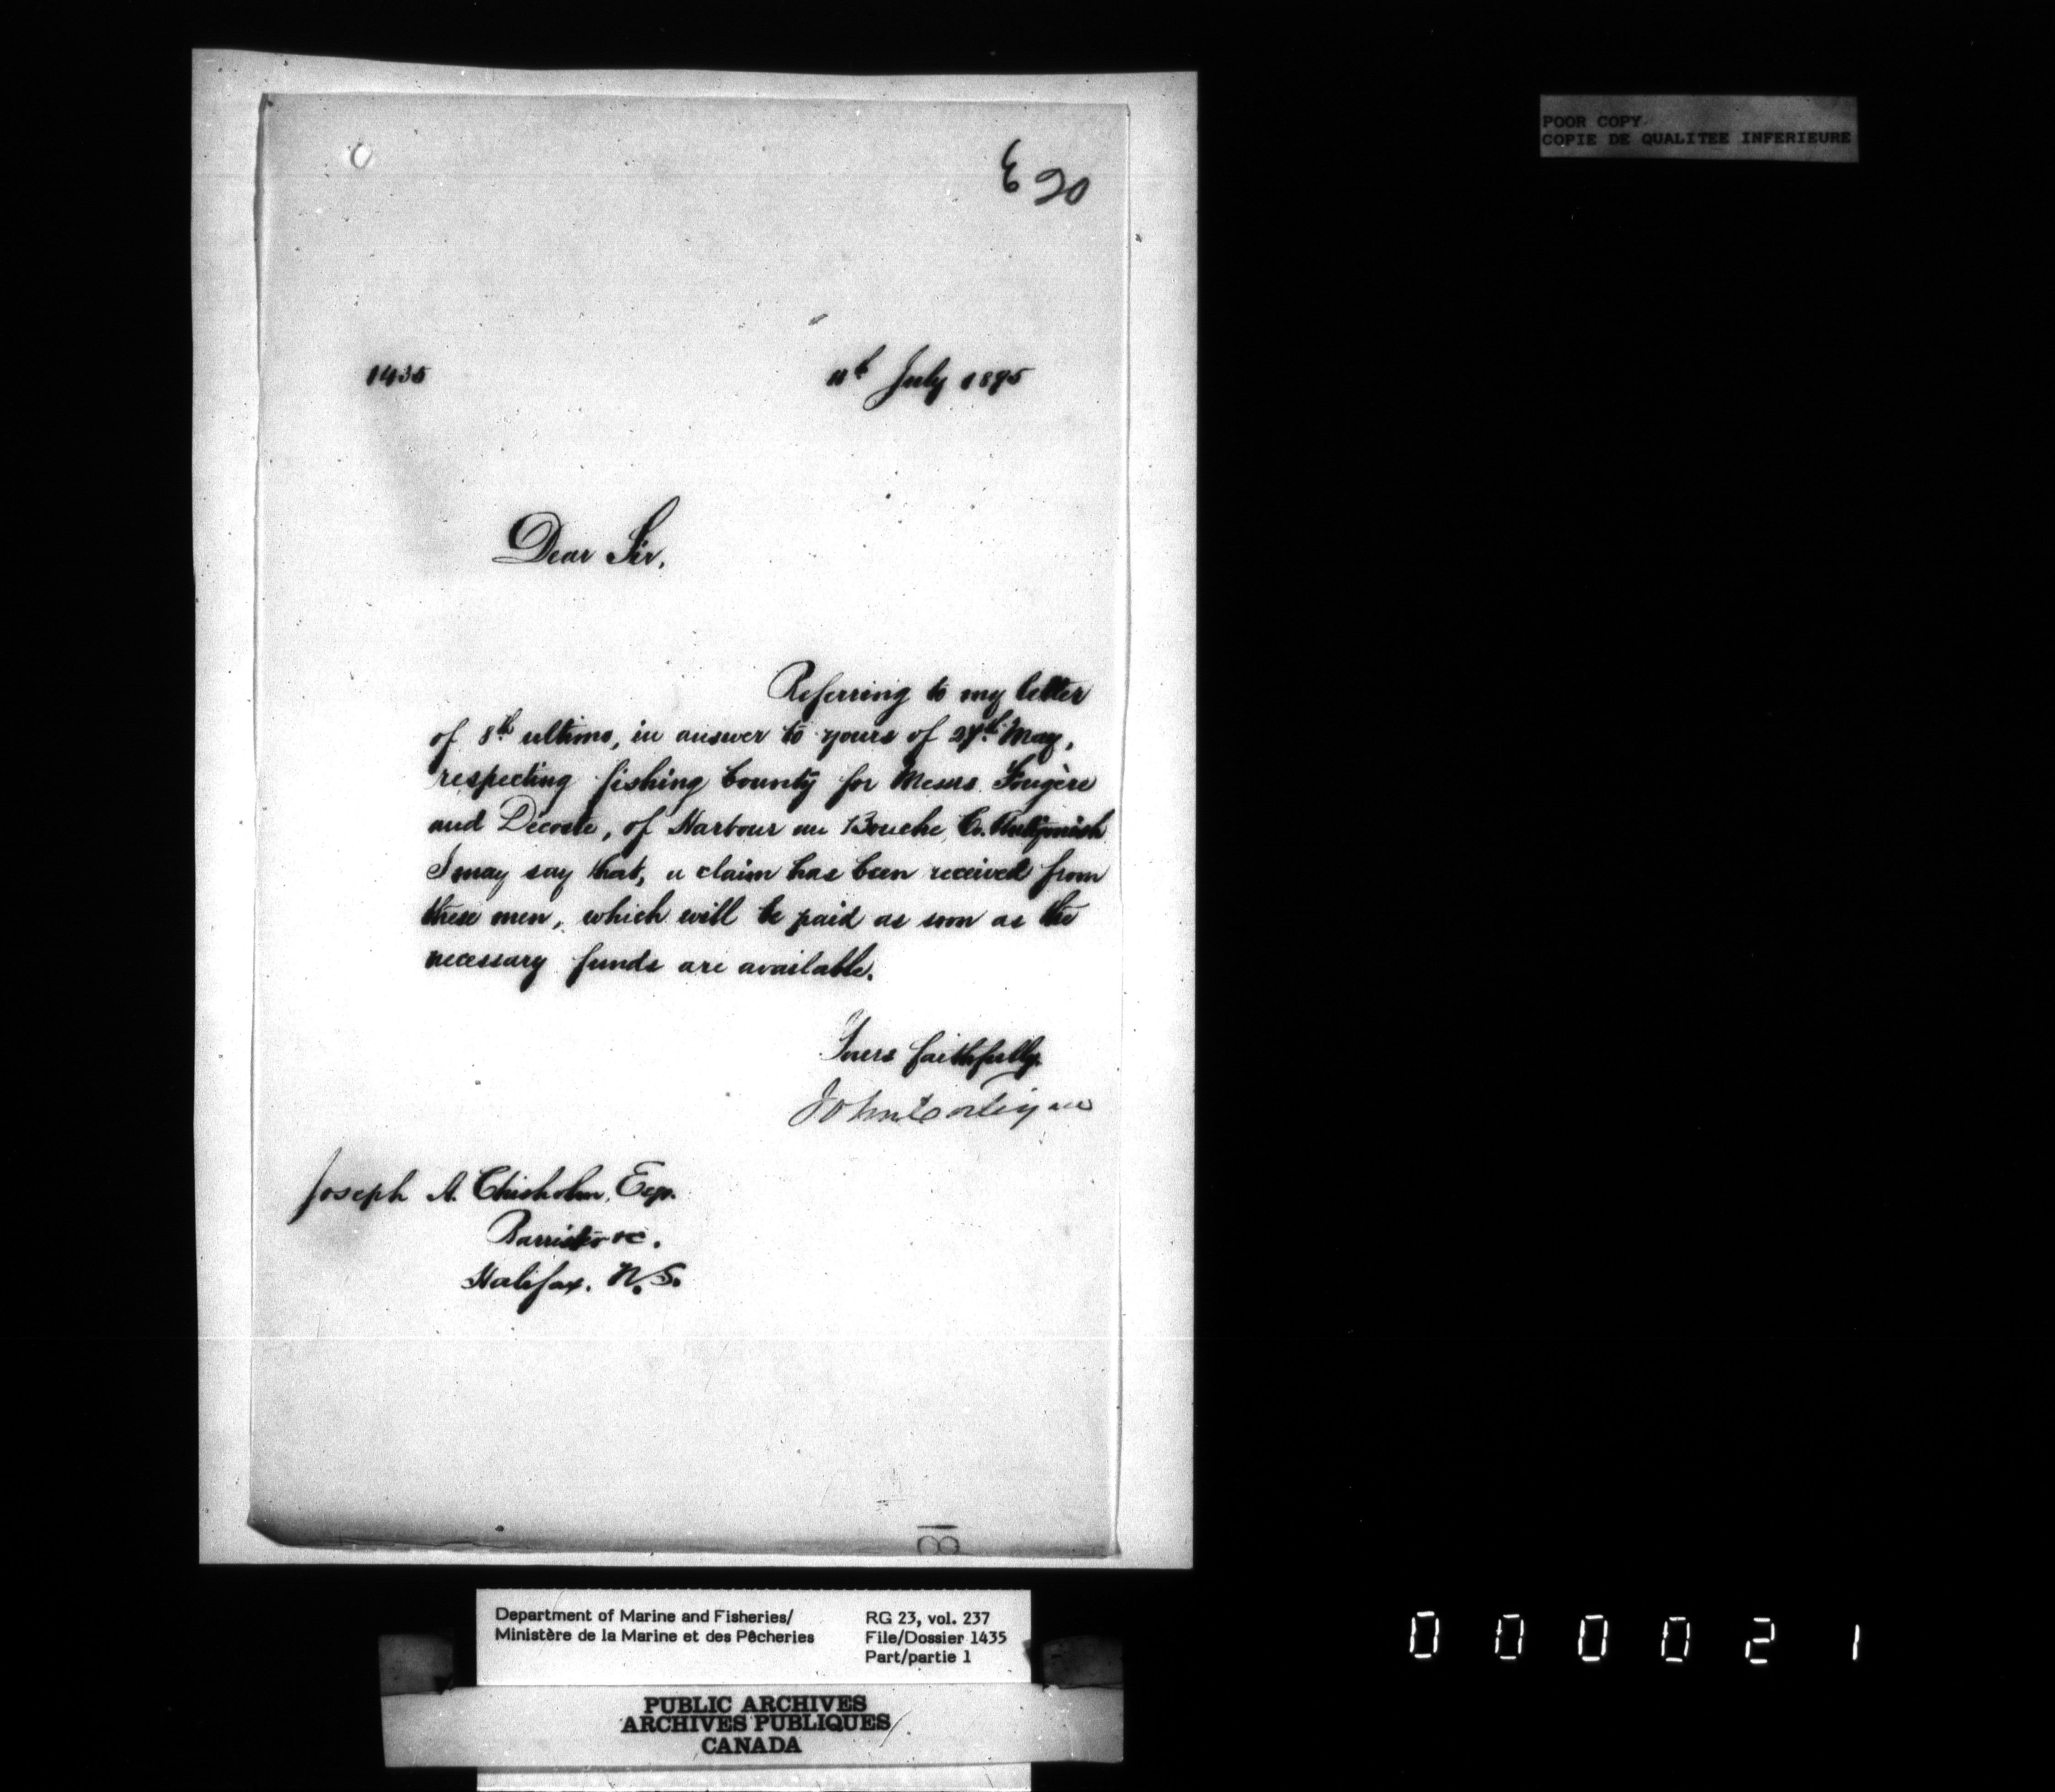 POOR COPY
COPIE DE QUALITEE INFERIEURE
1435
11th July 1895
Dear Sir,
Referring to my letter
of 8th ultimo, in answer to yours of 27th May,
respecting fishing bounty for Messrs. Fougère
and Decoste, of Harbour au Bouche Co. Antigonish
I may say that, a claim has been received from
these men, which will be paid as soon as the
necessary funds are available.
Yours faithfully.
John Costigan
Joseph A. Chisholm, Esqr.
Barrister &c.
Halifax. N.S.
Department of Marine and Fisheries/
Ministère de la Marine et des Pêcheries
RG 23, vol. 237
File/Dossier 1435
Part/partie 1
PUBLIC ARCHIVES
ARCHIVES PUBLIQUES
CANADA
000021